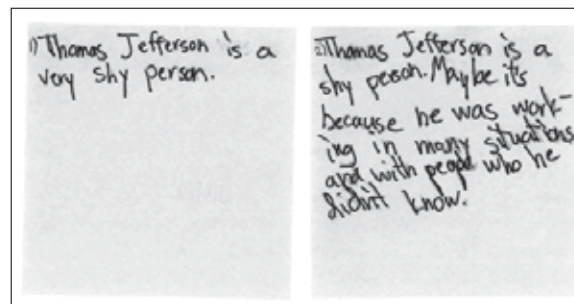 1) Thomas Jefferson is a
very shy person.
2) Thomas Jefferson is a
shy person. Maybe it's
because he was work-
ing in many situations
and with people who he
didn't know.